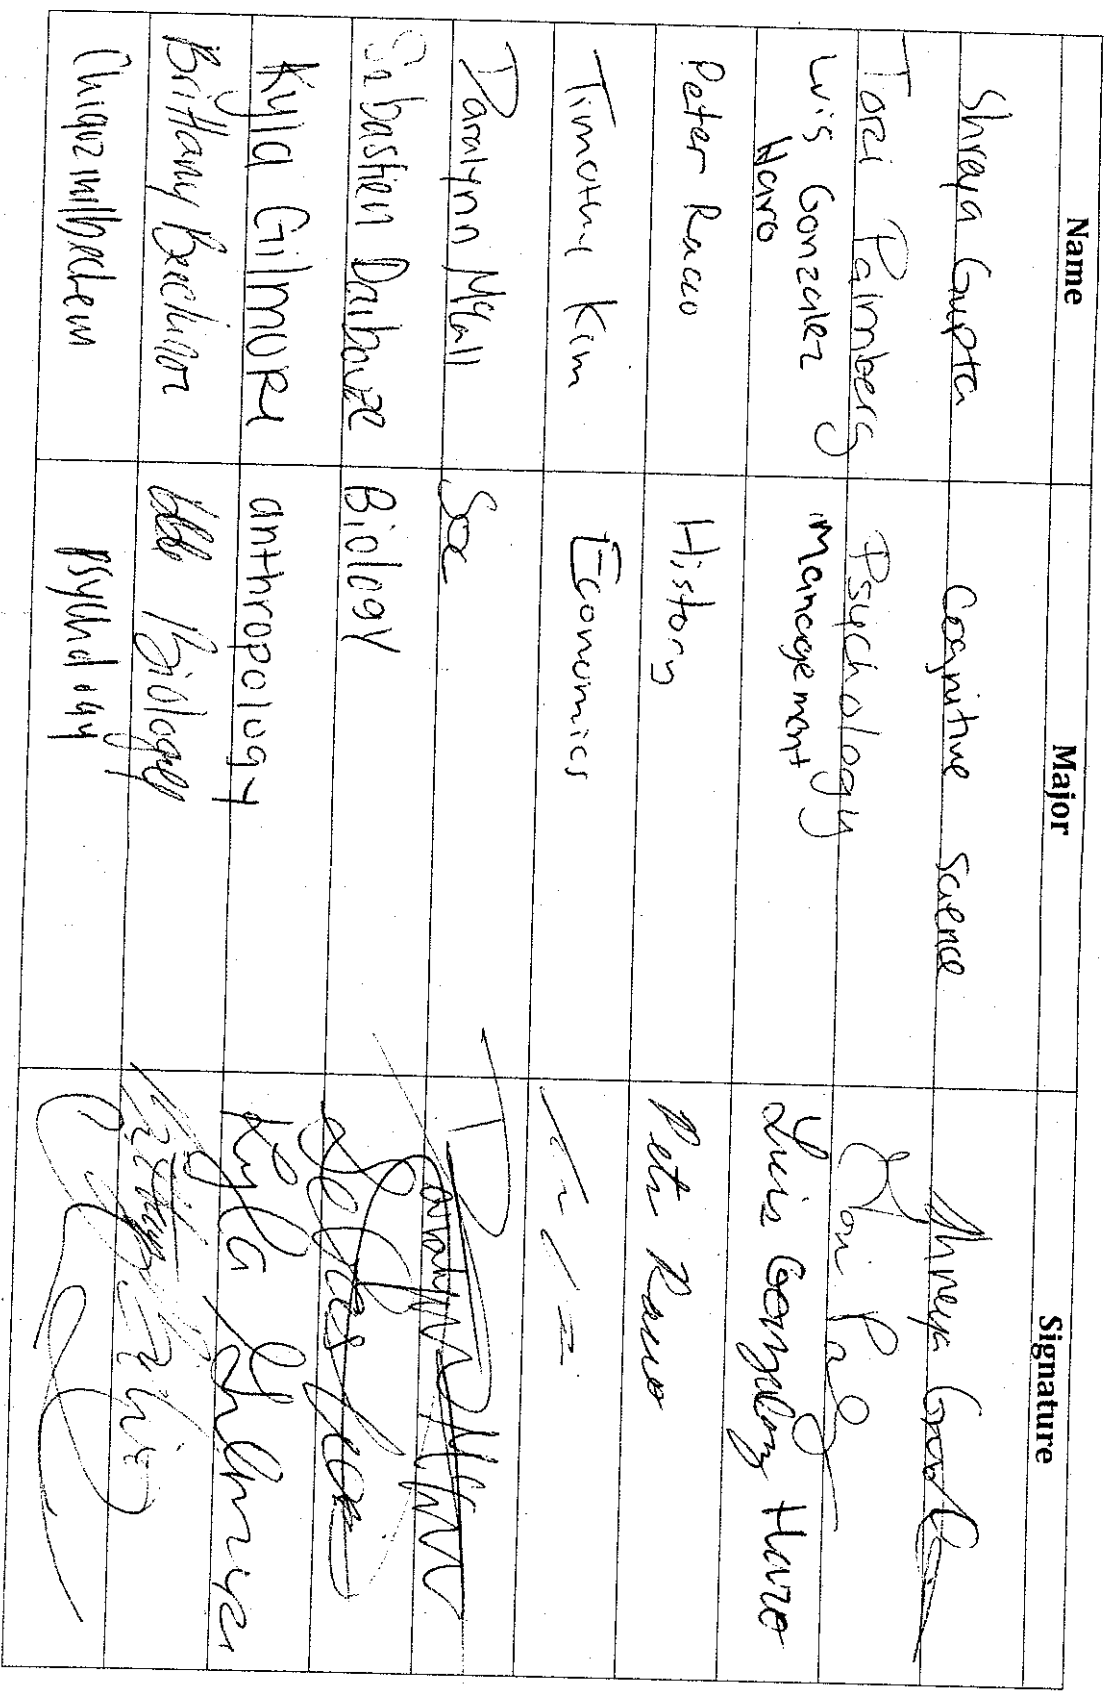 Name Major Signature
Shreya Gupta Cognitive Science Shreya Gupta
Tori Palmberg Psychology Tori
Luis Gonzalez Haro Management Luis Gonzalez Haro
Peter Racco History Peter Racco
Timothy Kim Economics
Daralynn McCall Soc Daralynn McCall
Sebastien Biology
Kyla Gilmore anthropology Kyla Gilmore
Brittany Biology Brittany
psychology